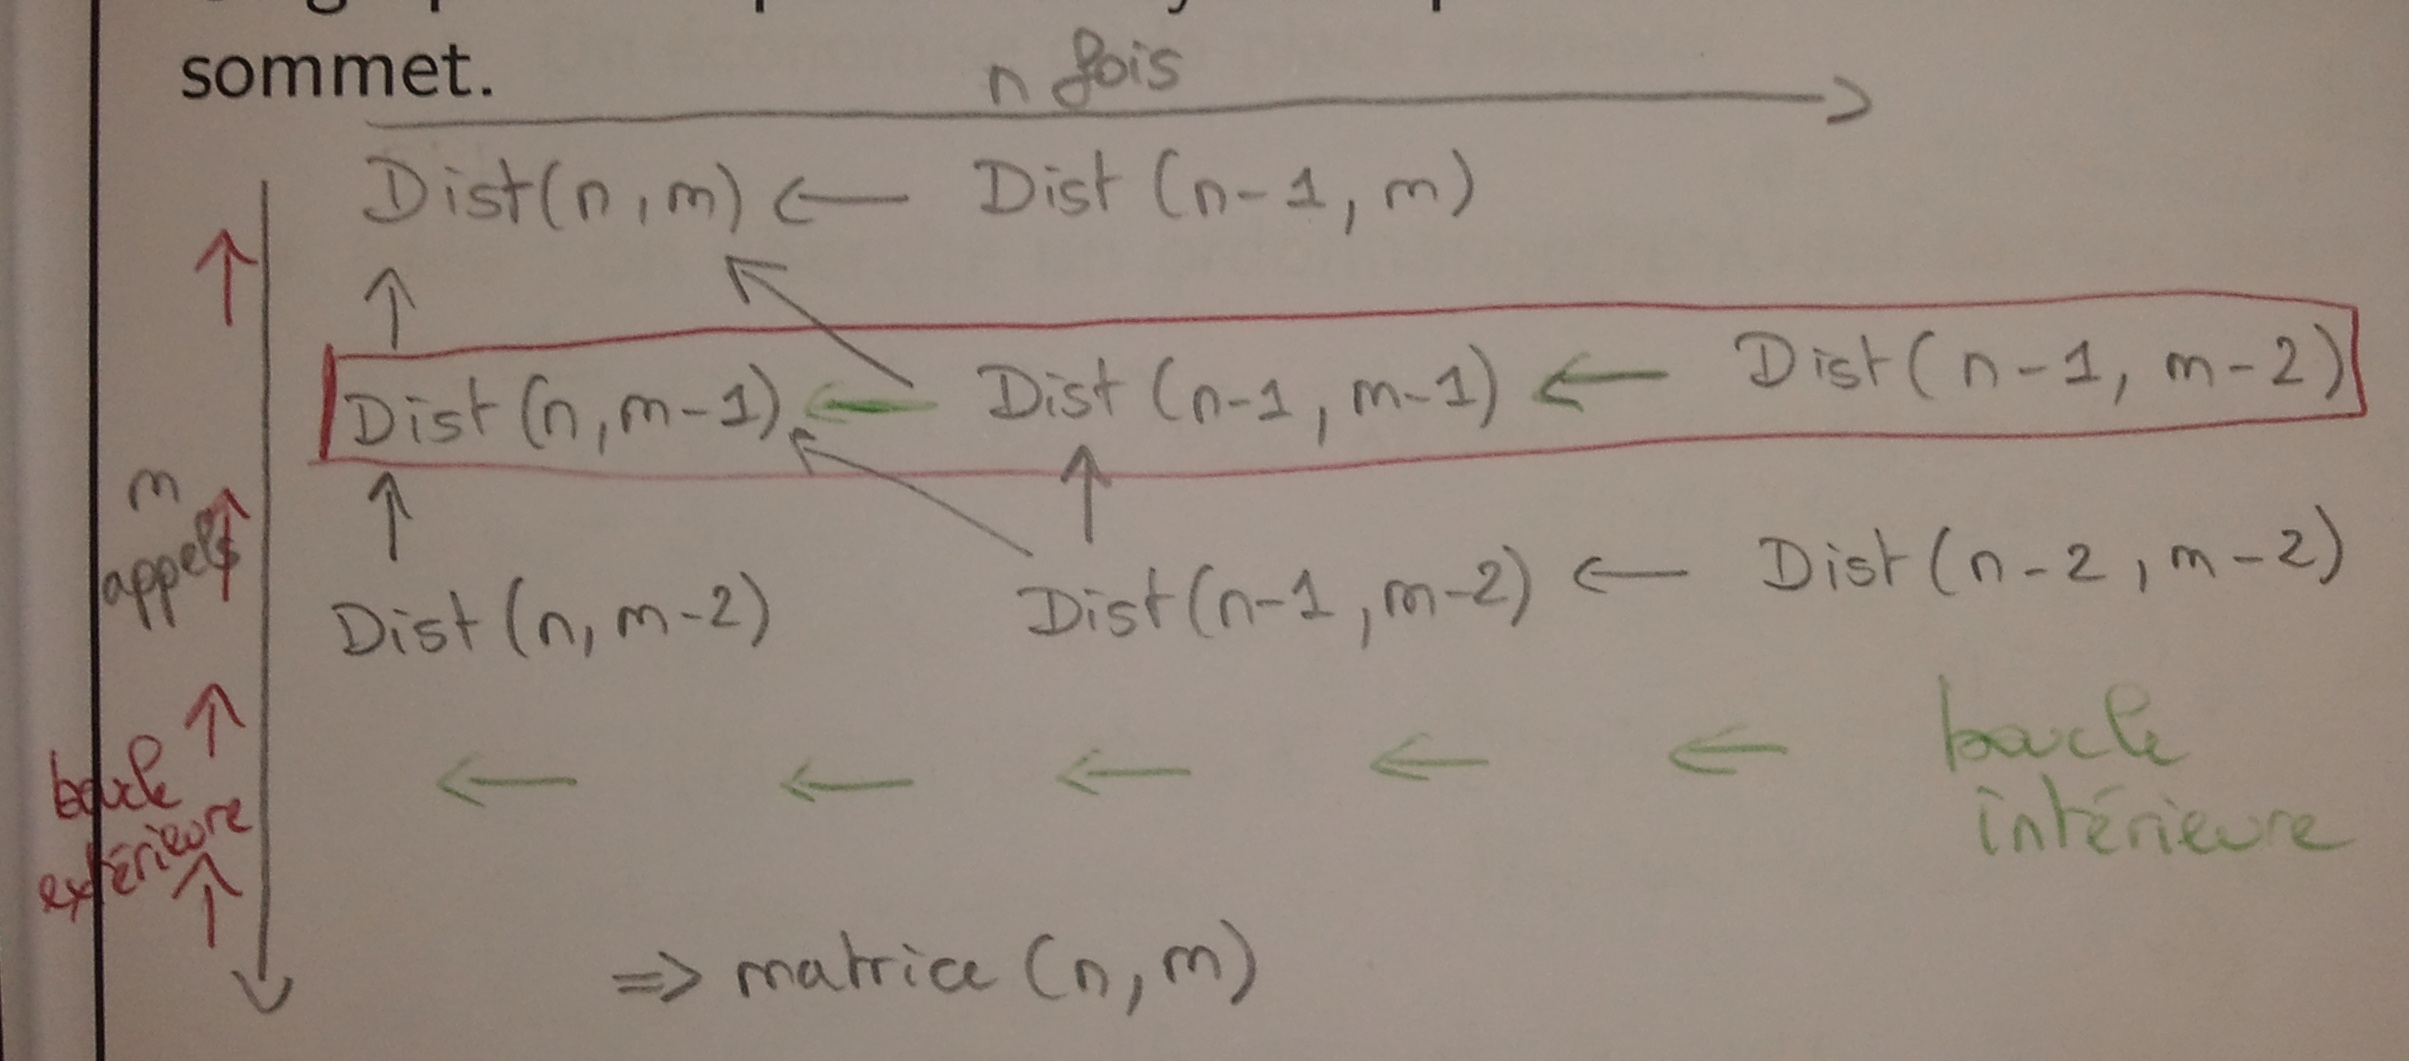 sommet.
n fois
Dist(n,m) ← Dist (n-1, m)
Dist (n, m-1) ← Dist (n-1, m-1) ← Dist (n-1, m-2)
m
appels
Dist (n, m-2) Dist (n-1, m-2) ← Dist (n-2, m-2)
boucle
extérieure
← ← ← ← ← boucle
intérieure
=> matrice (n, m)